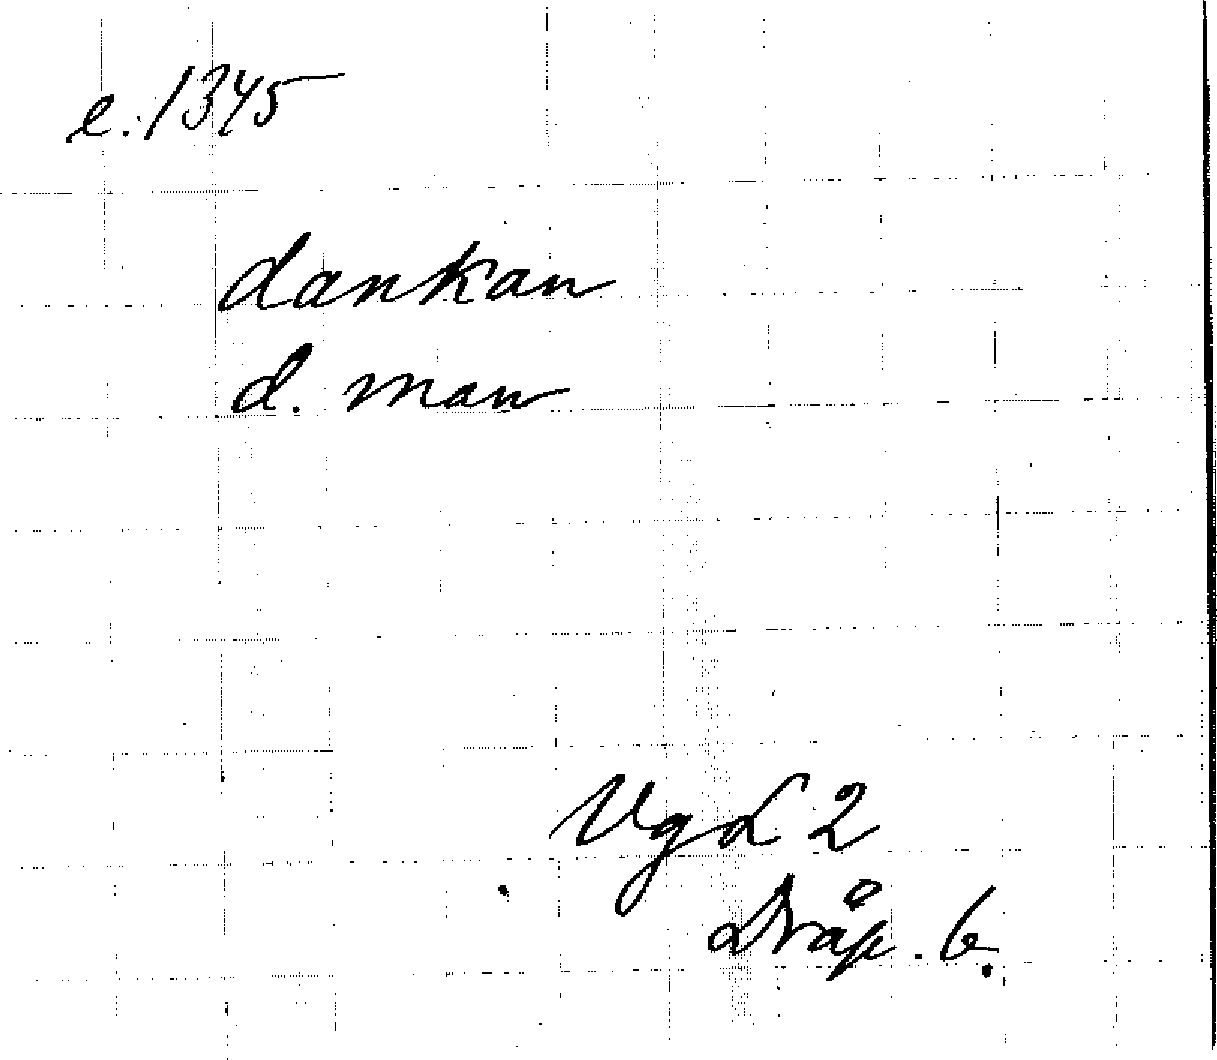 e. 1345
dankan
d. man
VgL 2
Dråp. 6.